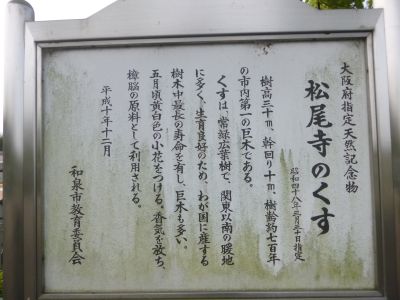 大阪府指定天然記念物
松尾寺のくす
昭和四十八年三月三十日指定
樹高三十m、幹回り十m、樹齢約七百年
の市内第一の巨木である。
くすは、常緑広葉樹で、関東以南の暖地
に多く、生育良好のため、わが国に産する
樹木中最長の寿命を有し、巨木も多い。
五月頃黄白色の小花をつける。香気を放ち、
樟脳の原料として利用される。
平成十年十二月
和泉市教育委員会